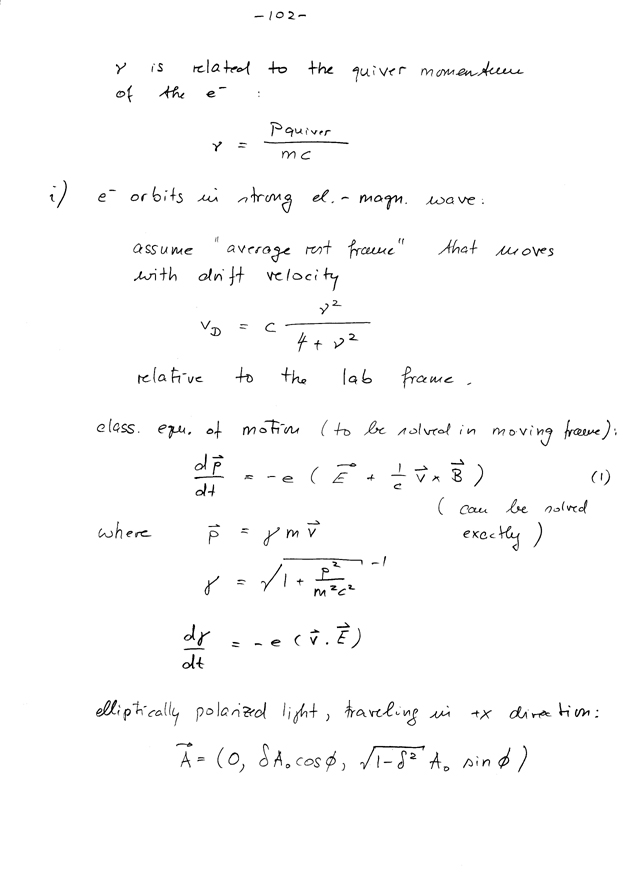 -102-
γ is related to the quiver momentum
of the e⁻ :
γ = Pquiver / mc
i) e⁻ orbits in strong el.-magn. wave:
assume "average rest frame" that moves
with drift velocity
v_D = c ν² / (4 + ν²)
relative to the lab frame.
class. equ. of motion (to be solved in moving frame):
dp⃗/dt = -e ( E⃗ + 1/c v⃗ × B⃗ ) (1)
( can be solved
exactly )
where p⃗ = γ m v⃗
γ = √(1 + p²/m²c²) ⁻¹
dγ/dt = -e ( v⃗ . E⃗ )
elliptically polarized light, traveling in +x direction:
A⃗ = (0, δA₀ cos φ, √(1-δ²) A₀ sin φ )